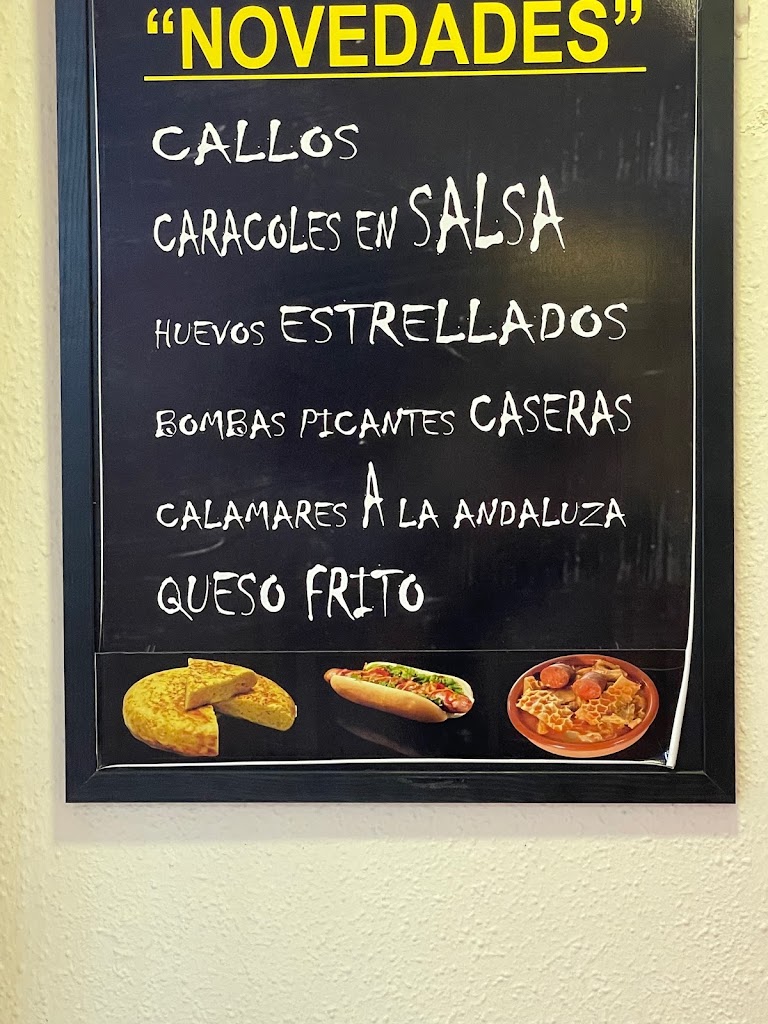 “NOVEDADES”
CALLOS
CARACOLES EN SALSA
HUEVOS ESTRELLADOS
BOMBAS PICANTES CASERAS
CALAMARES A LA ANDALUZA
QUESO FRITO